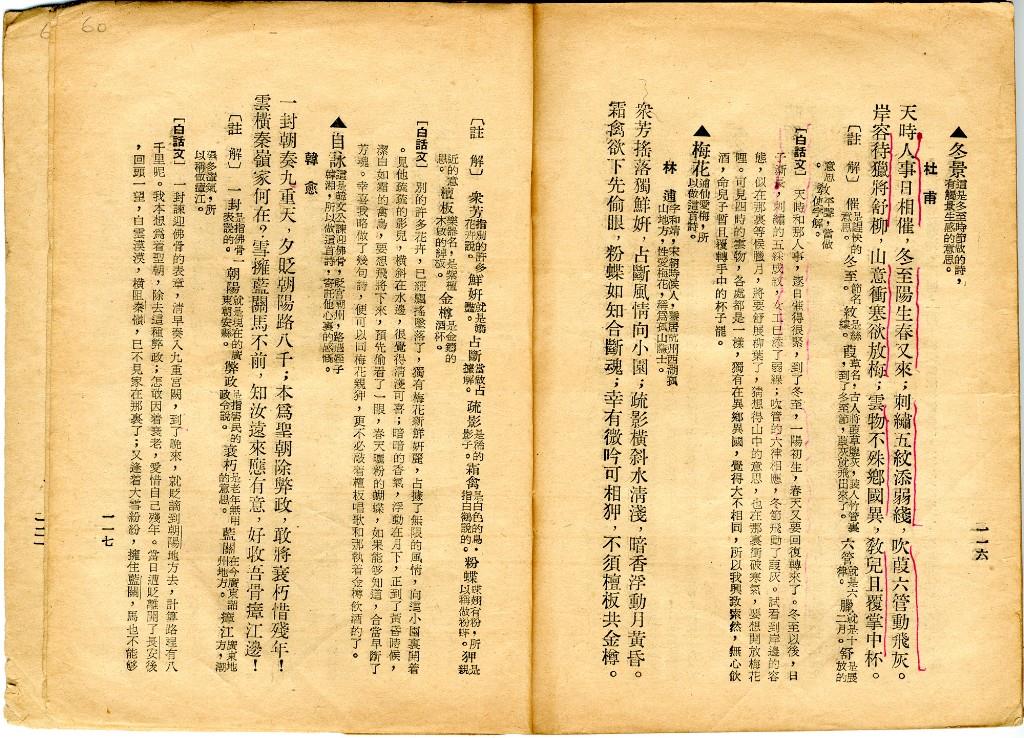 一一六
▲冬景 這是冬至時節做的詩，有觸景生感的意思。
杜甫
天時人事日相催，冬至陽生春又來；刺繡五紋添弱綫，吹葭六管動飛灰。
岸容待獵將舒柳，山意衝寒欲放梅；雲物不殊鄉國異，敎兒且覆掌中杯。
〔註　解〕催 是趕快的意思。冬至 節名
六管 就是六律。臘 就是十二月。舒 是展放的
意思。敎 平聲，當做使字解。
〔白話文〕天時和那人事，逐日催得很緊，到了冬至，一陽初生，春天又要回復轉來了。冬至以後，日
子漸長，刺繡的五綵成紋，女工已添了弱線；吹管的六律相應，冬節飛動了葭灰。試看到岸邊的容
態，似在那裏等候臘月，將要舒展柳葉了，猜想得山中的意思，也在那裏衝破寒氣，要想開放梅花
哩。可見四時的雲物，各處都是一樣，獨有在異鄉異國，覺得大不相同，所以我興致索然，無心飲
酒，命兒子暫且覆轉手中的杯子罷。
▲梅花 逋仙愛梅，所以做這首詩。
林逋 字和靖，宋朝時候人，隱居杭州西湖孤山地方，性愛梅花，稱爲孤山隱士。
衆芳搖落獨鮮妍，占斷風情向小園；疏影橫斜水清淺，暗香浮動月黃昏。
霜禽欲下先偷眼，粉蝶如知合斷魂；幸有微吟可相狎，不須檀板共金樽。
〔註　解〕衆芳 指別的許多花卉說。鮮妍 就是嬌豔。占斷 當做占據解。疏影 是淸的影子。霜禽 是白色的鳥，指白鶴說的。粉蝶 蝴蝶有粉，所以稱做粉蝶。狎 是親
近的意思。檀板 樂器名，是紫檀木做的綽板。金樽 是金鑄的酒杯。
〔白話文〕別的許多花卉，已經飄搖墜落了，獨有梅花新鮮妍麗，占據了無限的風情，向這小園裏開着
。見他疏疏的影兒，橫斜在水邊，很覺得清淺可喜；暗暗的香氣，浮動在月下，正到了黃昏時候，
潔白如霜的禽鳥，要想飛將下來，預先偷看了一眼，春天曬粉的蝴蝶，如果能夠知道，合當早斷了
芳魂。幸喜我略做了幾句詩，便可以同梅花親狎，更不必敲着檀板唱歌和那執着金樽飲酒的了。
▲自詠 這是韓文公諫迎佛骨，貶官朝州，路遇姪子韓湘，所以做這首詩，寄託他心裏的感慨。
韓愈
一封朝奏九重天，夕貶朝陽路八千；本爲聖朝除弊政，敢將衰朽惜殘年！
雲橫秦嶺家何在？雪擁藍關馬不前，知汝遠來應有意，好收吾骨瘴江邊！
〔註　解〕一封 是指佛骨表說的。朝陽 就是現在的廣東朝安縣。弊政 是指害民的政令說。衰朽 是老年無用的意思。藍關 在今廣東韶州地方。瘴江 廣東地方，潮
濕多瘴氣，所以稱做瘴江。
〔白話文〕一封諫迎佛骨的表章，清早奏入九重宮闕，到了晚來，就貶謫到朝陽地方去，計算路程有八
千里呢。我本想爲着聖朝，除去這種弊政；怎敢因着衰老，愛惜自己殘年。當日遭貶離開了長安後
，回頭一望，白雲漠漠，橫阻秦嶺，已不見家在那裏了；又逢着大雪紛紛，擁住藍關，馬也不能夠
一一七
60
6